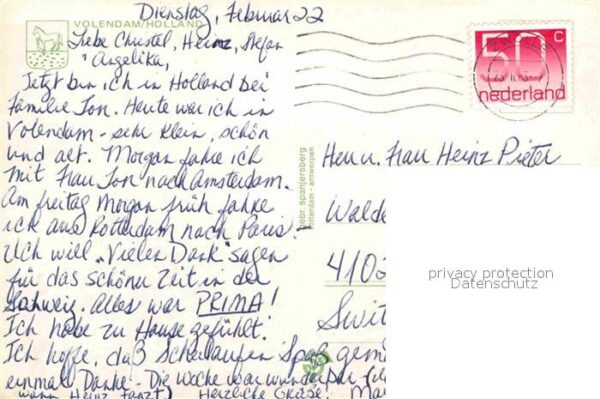 Dienstag, Februar 22
VOLENDAM/HOLLAND
Liebe Christel, Heinz, Stefan
Angelika,
Jetzt bin ich in Holland bei
Familie Jon. Heute war ich in
Volendam - sehr klein, schön
und alt. Morgan fahre ich
mit Frau Jon nach Amsterdam.
Am freitag Morgan früh fahre
ick aus Rotterdam nach Paris.
Uch will „Vielen Dank" sagen
für das schöner Zeit in der
Schweiz. Alles war PRIMA!
Ich habe zu Hause gefühlt.
Ich hoffe, daß Schilaufen Spaß gem
einmal Danke - Die Woche war wunderbar
wann Heinz tanzt) Herzliche Grüße. Ma
50 c
nederland
gebr. spanjersberg
rotterdam - antwerpen
Herr u. Frau Heinz Pieter
Walde
4103
Swit
privacy protection
Datenschutz